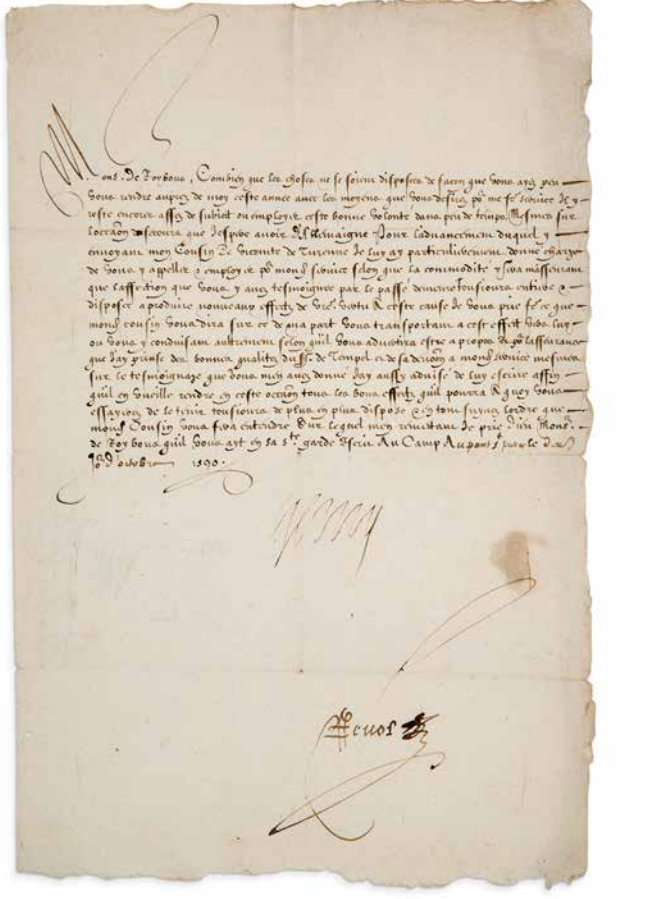 Mons. de Roybons, Combien que les choses ne se soient disposees de facon que vous ayez peu
vous rendre aupres de moy ceste annee avec les moyens que vous desirez po' me fe' service Il y
reste encores assez de subiect ou employer ceste bonne volonte dans peu de temps Mesmes sur
loccaon du secours que jespere avoir dAllemaigne Pour ladvancement duquel y
envoyant mon Cousin le Viconte de Turenne Je luy ay particulierement donne charge
de vous y appeller & employer po' mond service selon que la commodite y sera masseurant
que laffection que vous y avez tesmoignee par le passe demeure tousiours entiere &
disposee a produire nouveaux effectz de vre' vertu A ceste cause Je vous prie fe' ce que
mond cousin vous dira sur ce de ma part vous transportant a cest effect vers luy
ou vous y conduisant aultrement selon quil vous advertira estre a propos Et po' lasseurance
que jay prinse des bonnes qualitez du Sr. de Tempel et de sa devoon a mond service mesmes
sur le tesmoignage que vous men avez donne Jay aussy advise de luy escrire affin
quil en vueille rendre en ceste occaon tous les bons effectz quil pourra A quoy vous
essayerez de le tenir tousiours de plus en plus dispose & en tout suyvez lordre que
mond Cousin vous fera entendre Sur lequel men remettant Je prie Dieu Mons.
de Roybons quil vous ayt en sa ste garde Escrit Au Camp Au pont le
Jo' d'octobre 1590.
Henry
Revol